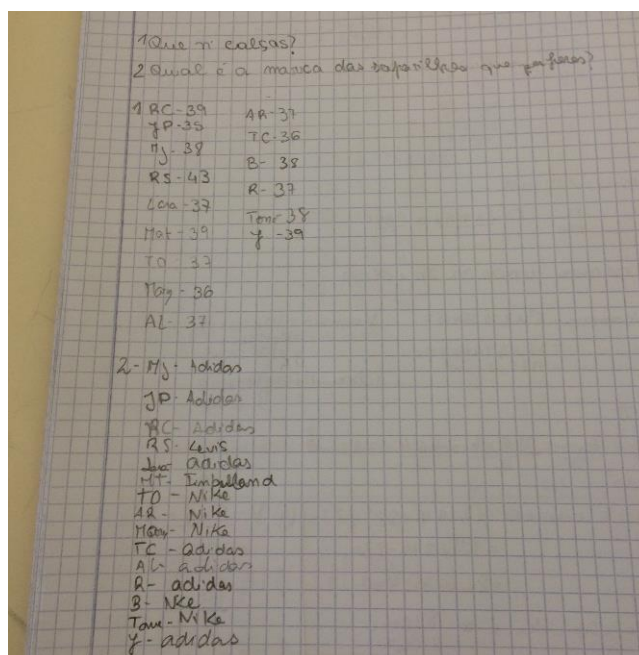 1 Que nº calsas?
2 Qual é a marca das sapatilhas que preferes?
1 RC - 39
JP - 35
Mj - 38
RS - 43
Lara - 37
Mat - 39
TO 37
Mary - 36
AL - 37
AR - 37
TC - 36
B - 38
R - 37
Tomé 38
Y - 39
2 - Mj - Adidas
JP - Adidas
RC - Adidas
RS - Levis
adidas
MT - Impulland
TO - Nike
AR - Nike
Mary - Nike
TC - adidas
AL - adidas
R - adidas
B - Nke
Tome - Nike
Y - adidas